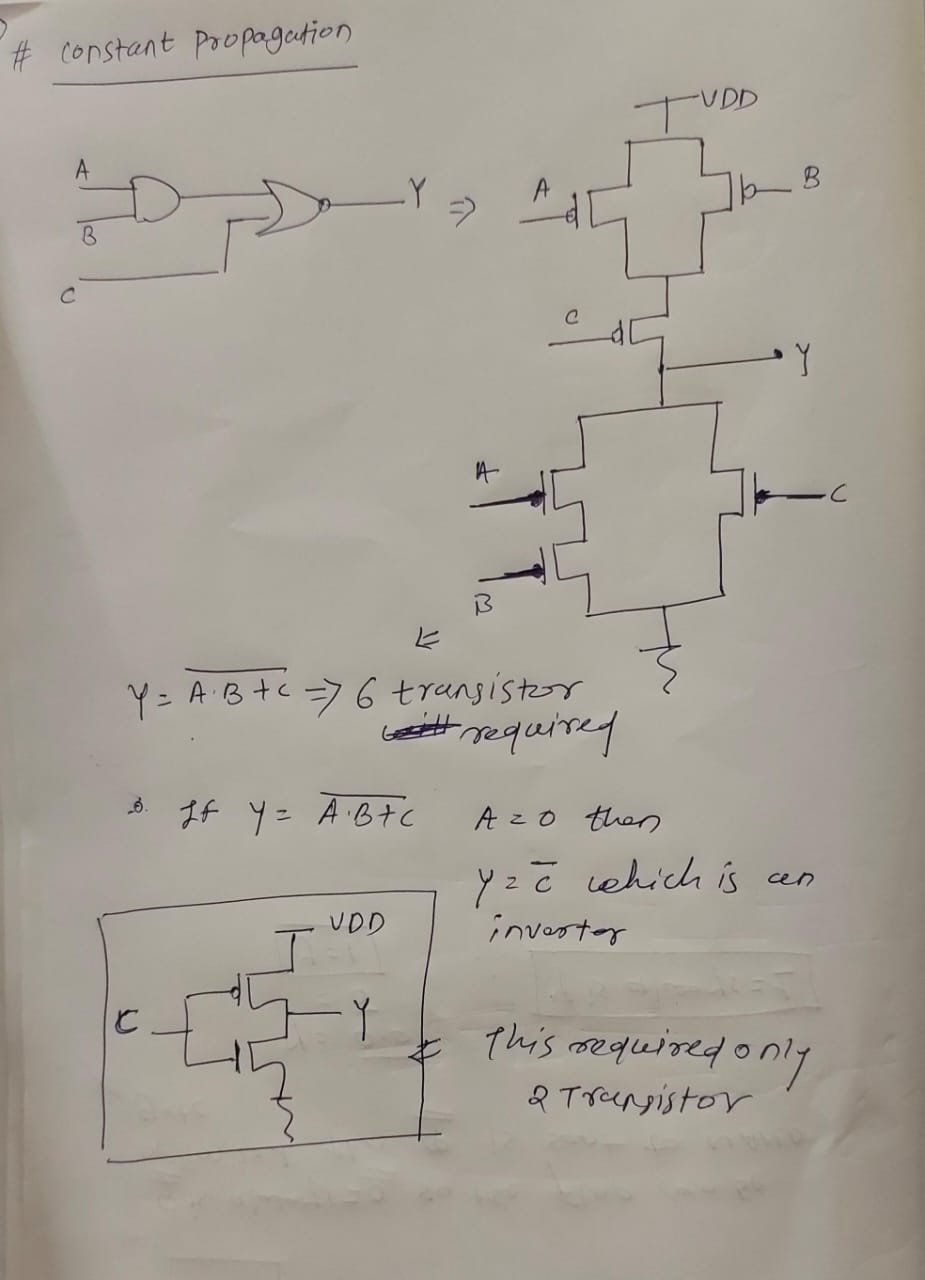 # Constant Propagation
VDD
A
B
C
Y ⇒
A
B
C
Y
A
B
C
Y = \overline{A·B+C} ⇒ 6 transistor
required
If Y = \overline{A·B+C} A=0 then
Y = \overline{C} which is an
invertor
VDD
C
Y
This required only
2 Transistor